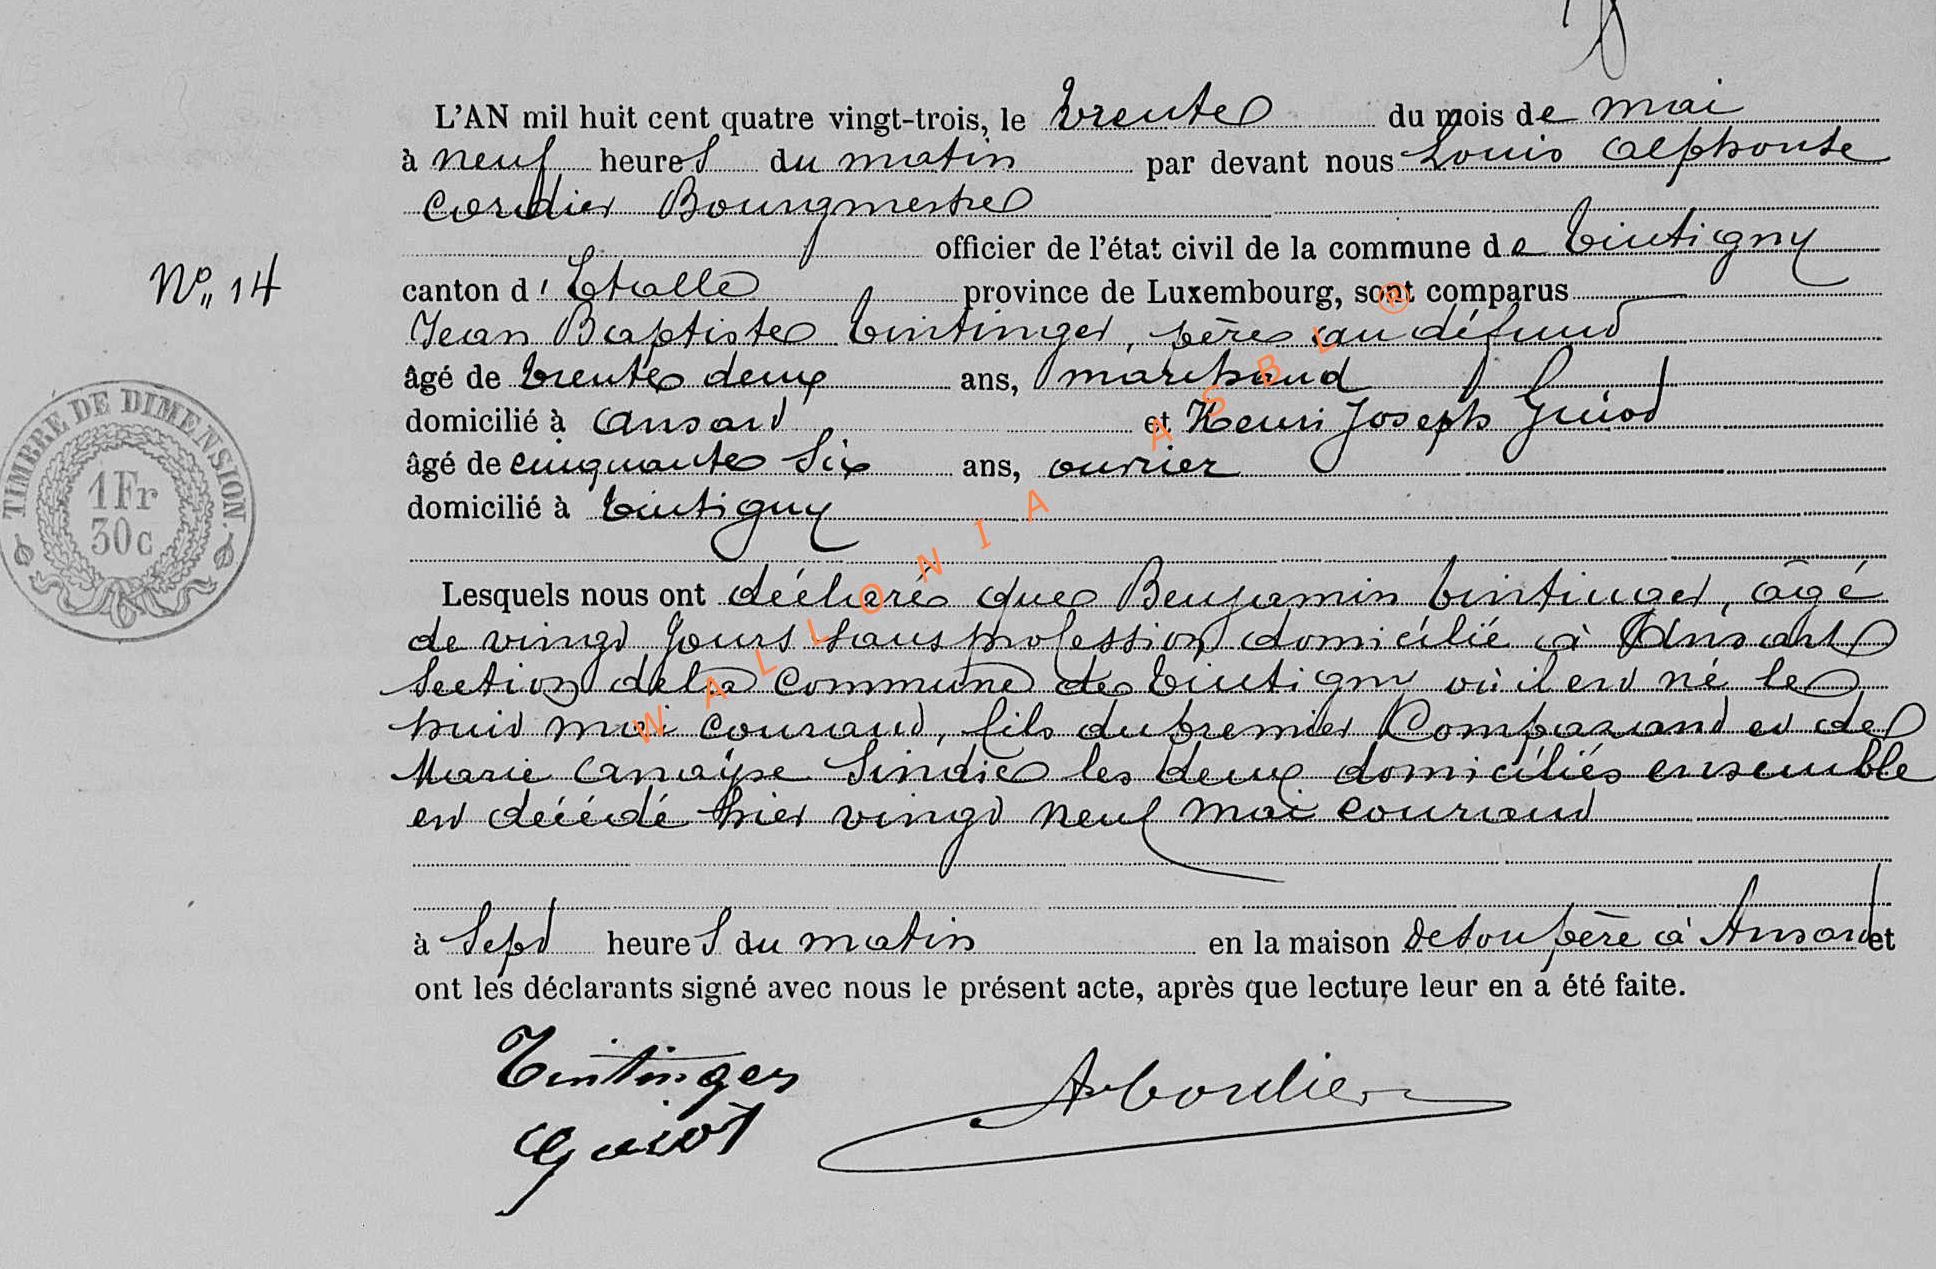 L'AN mil huit cent quatre vingt-trois, le trente du mois de mai
à neuf heures du matin par devant nous Louis Alphonse
Cordier Bourgmestre
officier de l'état civil de la commune de Tintigny
N° 14
canton d'Etalle province de Luxembourg, sont comparus
Jean Baptiste Tintinger, père au défunt
âgé de trente deux ans, marchand
domicilié à Ansart et Henri Joseph Guiot
âgé de cinquante six ans, ouvrier
domicilié à Tintigny
TIMBRE DE DIMENSION.
1Fr
30c
Lesquels nous ont déclaré que Benjamin Tintinger, âgé
de vingt jours sans profession domicilié à Ansart
section de la commune de Tintigny où il est né le
huit mai courant, fils du premier Comparant et de
Marie Sindic les deux domiciliés ensemble
est décédé hier vingt neuf mai courant
à sept heures du matin en la maison de son père à Ansart et
ont les déclarants signé avec nous le présent acte, après que lecture leur en a été faite.
Tintinger
Guiot
A Cordier
WALLONIA ASBL ®